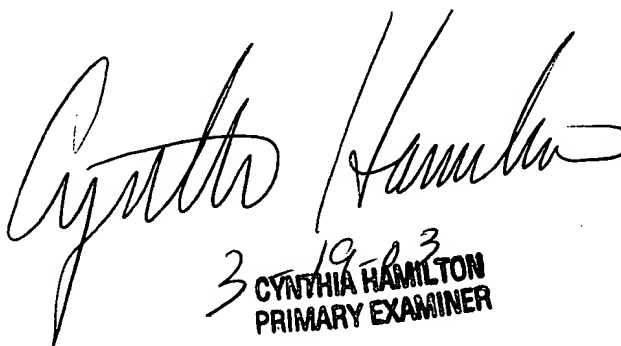 Cynthia Hamilton
3-19-03
CYNTHIA HAMILTON
PRIMARY EXAMINER